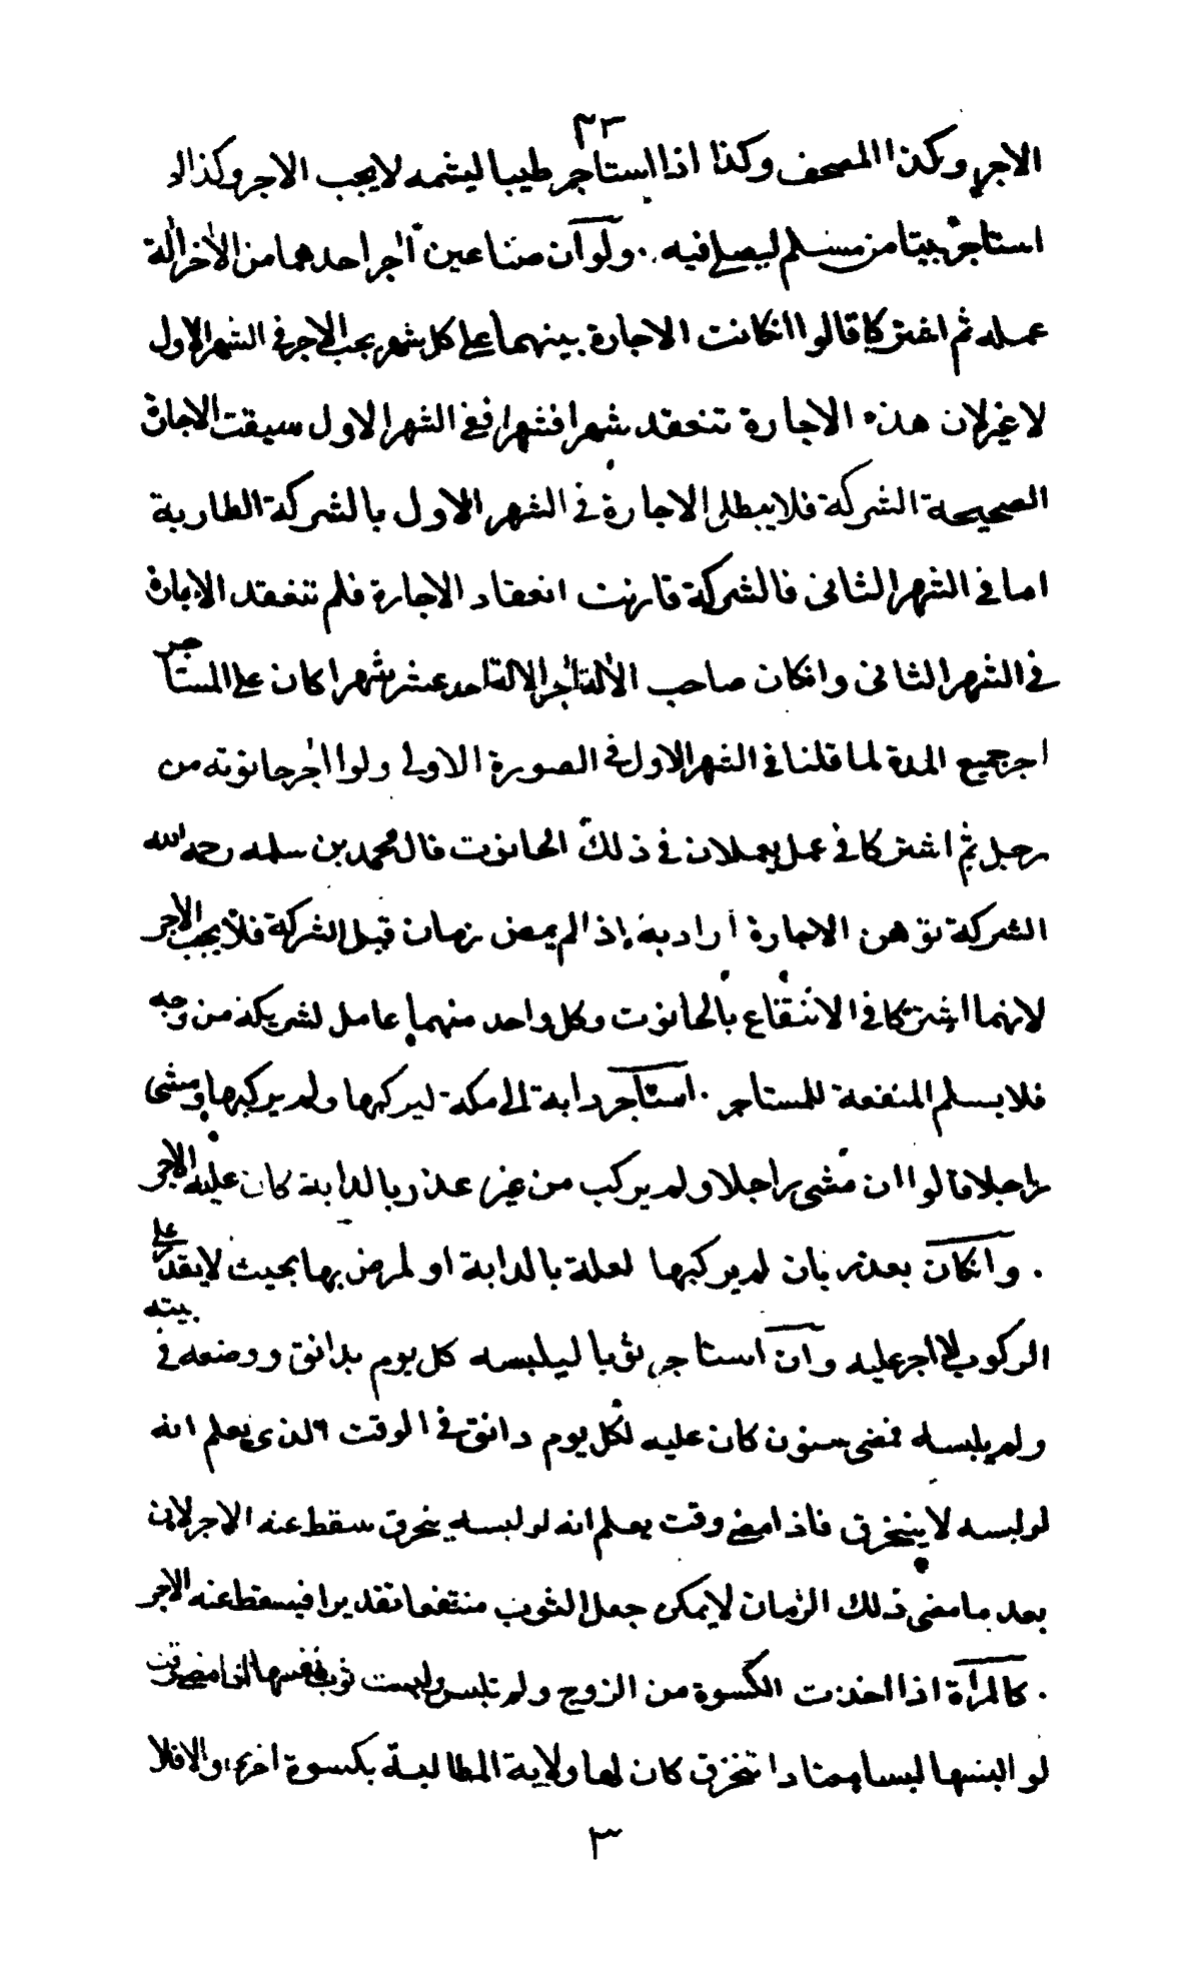 ٢٣
الاجر وكذا المصحف وكذا اذا استاجر طيبا ليشمه لا يجب الاجر وكذا لو
استاجر بيتا من مسلم ليصلي فيه . ولو ان صناعين آجر احدهما من الاخر الة
عمله ثم اشتركا قالوا انكانت الاجارة بينهما على كل شهر يجب الاجر في الشهر الاول
لا غير لان هذه الاجارة تنعقد شهرا فشهرا ففي الشهر الاول سبقت الاجارة
الصحيحة الشركة فلا يبطل الاجارة في الشهر الاول بالشركة الطارية
اما في الشهر الثانى فالشركة قارنت انعقاد الاجارة فلم تنعقد الاجارة
في الشهر الثانى وانكان صاحب الالة آجر الالة احد عشر شهرا كان على المستاجر
اجر جميع المدة لما قلنا في الشهر الاول في الصورة الاولى ولو آجر حانوته من
رجل ثم اشتركا في عمل يعملان في ذلك الحانوت قال محمد بن سلمه رحمه الله
الشركة توهن الاجارة اراد به اذا لم يمض زمان قبل الشركة فلا يجب الاجر
لانهما اشتركا في الانتقاع بالحانوت وكل واحد منهما عامل لشريكه من وجه
فلا يسلم المنفعة للمستاجر . استاجر دابة الى مكة ليركبها ولم يركبها ومشى
راجلا قالوا ان مشى راجلا ولم يركب من غير عذر بالدابة كان عليه الاجر
. وانكان بعذر بان لم يركبها لعلة بالدابة او لمرض بها بحيث لا يقدر على
الركوب لا اجر عليه وان استاجر ثوبا ليلبسه كل يوم بدانق ووضعه في بيته
ولم يلبسه فمضى سنون كان عليه لكل يوم دانق في الوقت الذى يعلم انه
لو لبسه لا يتخرق فاذا مضى وقت يعلم انه لو لبسه يتخرق سقط عنه الاجر لان
بعد ما مضى ذلك الزمان لا يمكن جعل الثوب منتفعا تقديرا فيسقط عنه الاجر
. كالمرأة اذا اخذت الكسوة من الزوج ولم تلبس ولبست ثوب نفسها اذا مضى وقت
لو البسها لبسا معتادا تتخرق كان لها ولاية المطالبة بكسوة اخرى والا فلا
٣